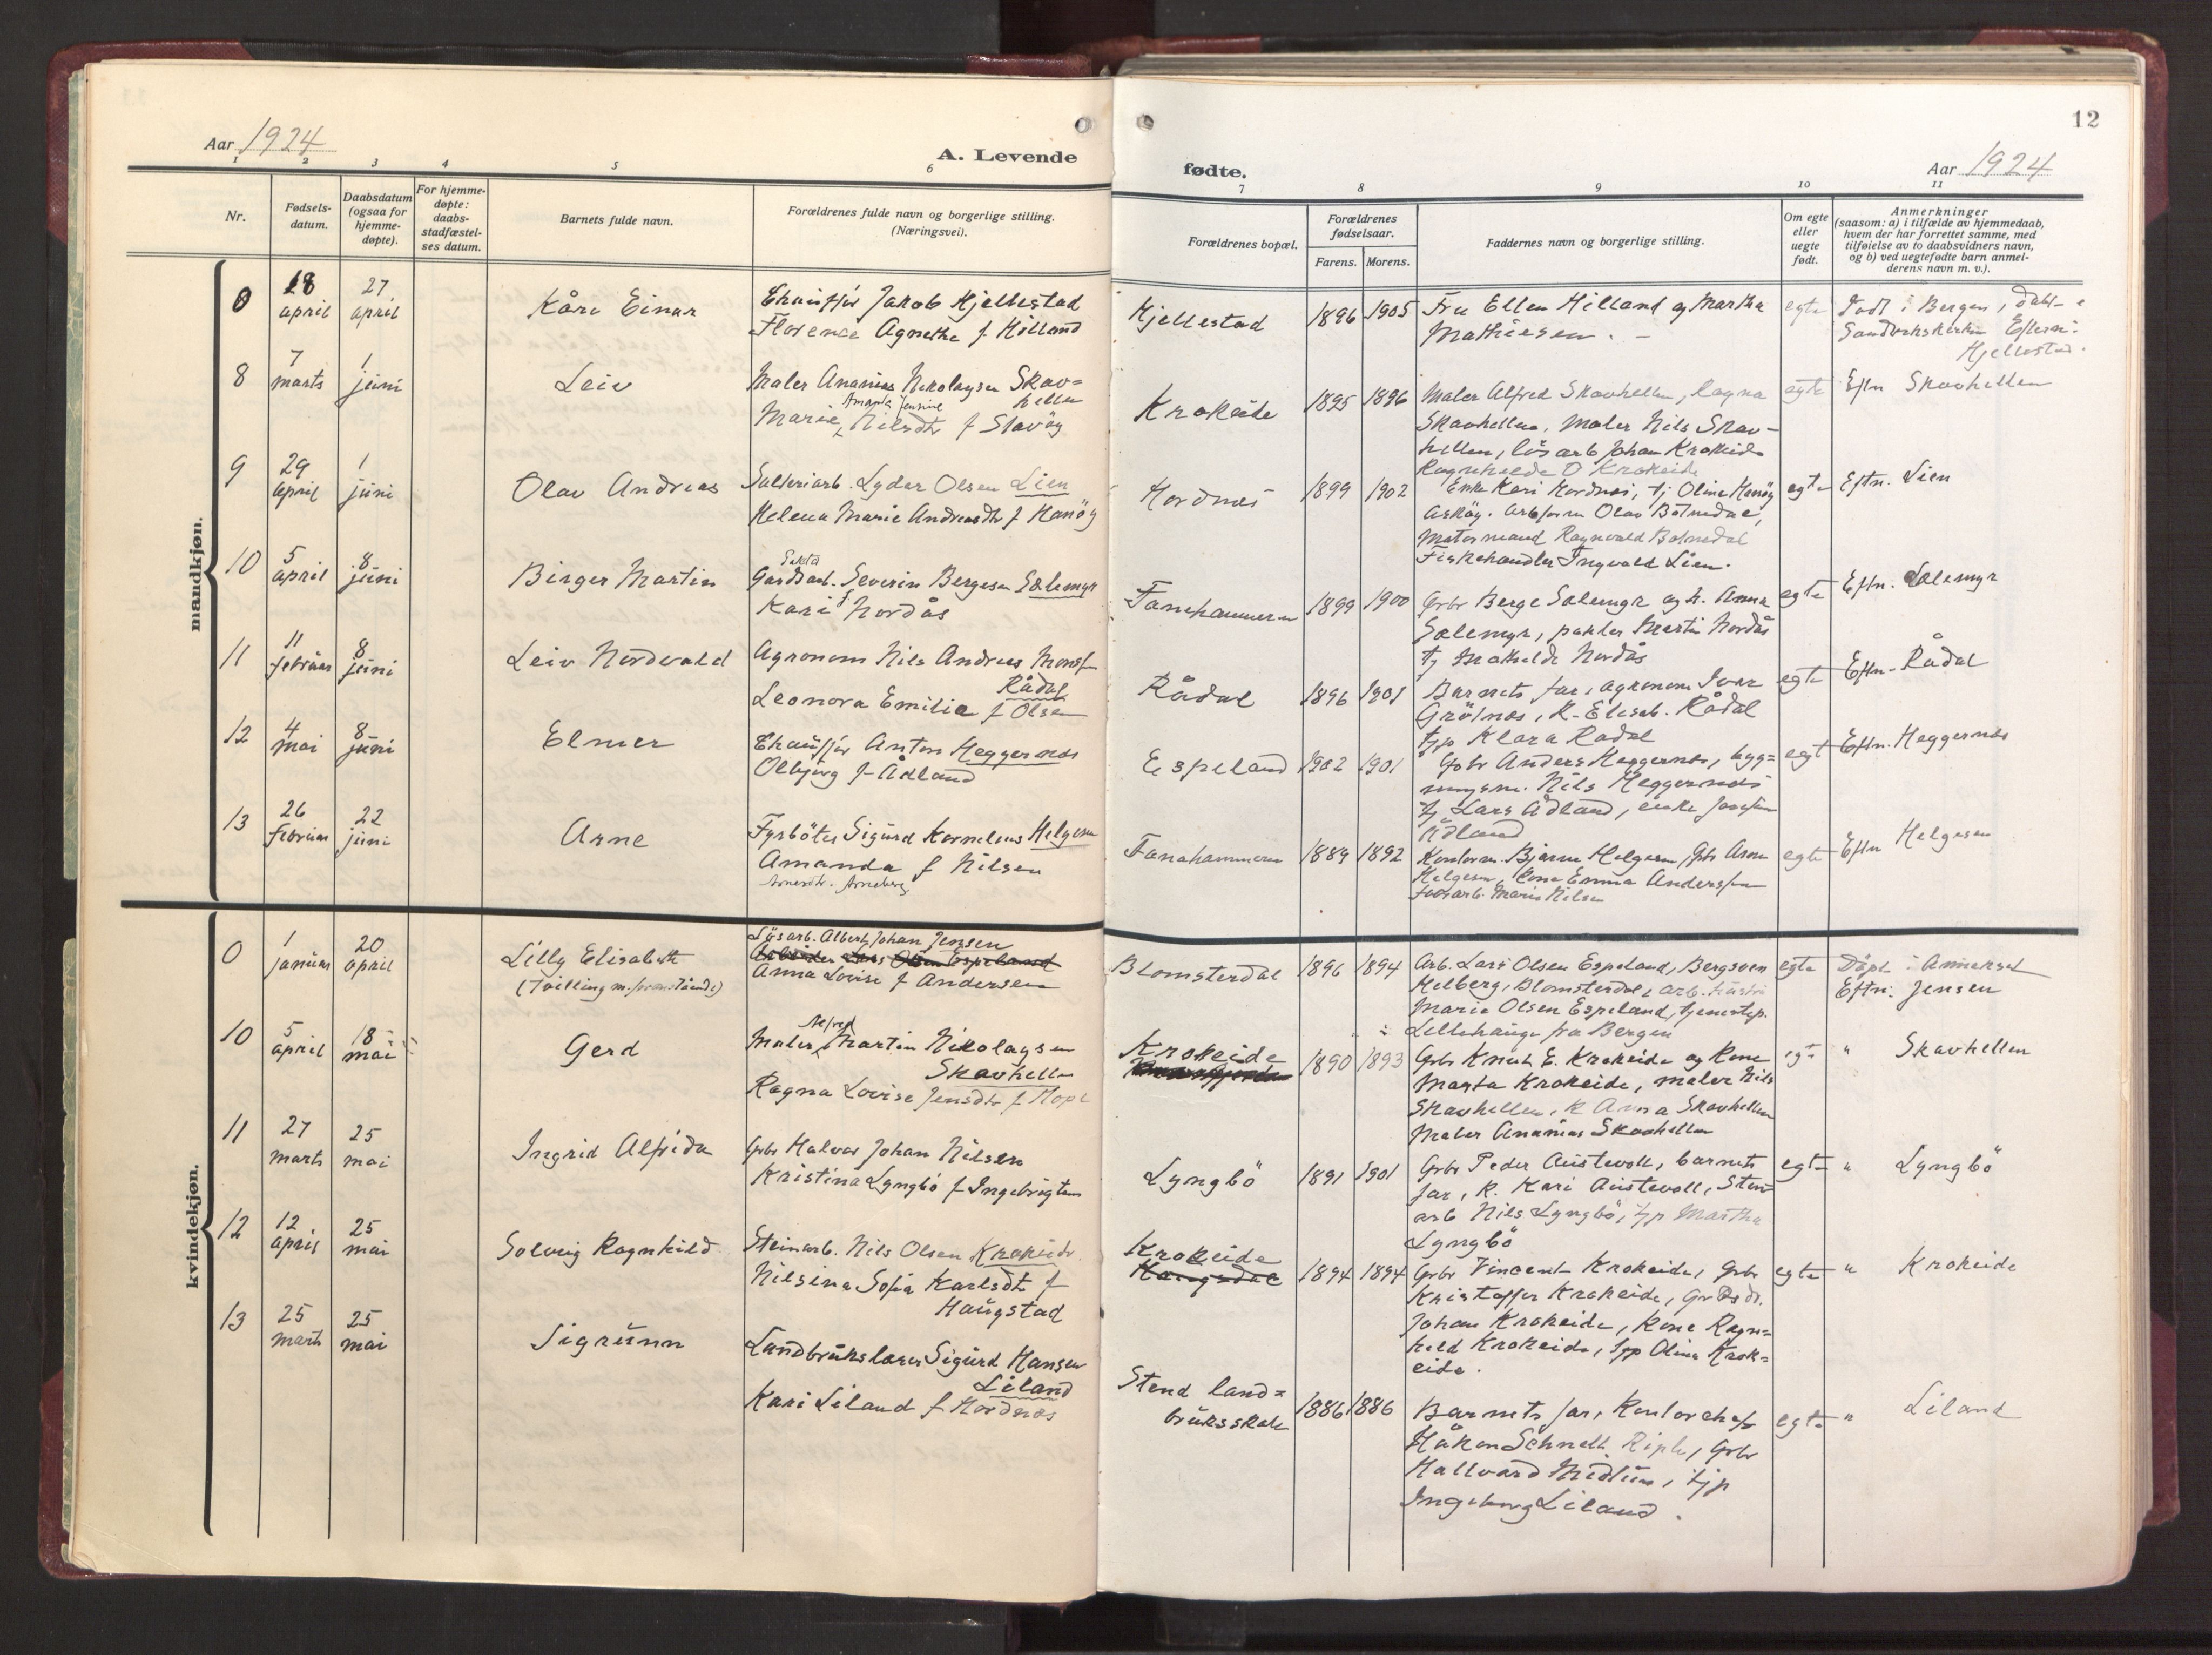 12
Aar 1924
A. Levende
fødte.
Aar 1924
1 2 3 4 5 6
7 8 9 10 11
Nr.
Fødsels-
datum.
Daabsdatum
(ogsaa for
hjemme-
døpte).
For hjemme-
døpte:
daabs-
stadfæstel-
ses datum.
Barnets fulde navn.
Forældrenes fulde navn og borgerlige stilling.
(Næringsvei).
Forældrenes bopæl.
Forældrenes
fødselsaar.
Farens. Morens.
Faddernes navn og borgerlige stilling.
Om egte
eller
uegte
født.
Anmerkninger
(saasom: a) i tilfælde av hjemmedaab,
hvem der har forrettet samme, med
tilføielse av to daabsvidners navn,
og b) ved uegtefødte barn anmel-
derens navn m. v.).
mandkjøn.
0
18
april
27
april
Kåre Einar
Chauffør Jakob Hjellestad
Florence Agnethe f Hilland
Hjellestad
1896 1905
Fru Ellen Hilland og Martha
Mathiesen.
egte
Født i Bergen, døbt i
Sandvikskirken Eftern:
Hjellestad.
8
7
marts
1
juni
Leiv
Maler Ananias Nikolaysen Skav=
hellen
Amanda Jensine
Marie Nilsdtr f Stavöy
Krokeide
1895 1896
Maler Alfred Skavhellen, Ragna
Skavhellen, maler Nils Skav-
hellen, lösarb Johan Krokeide
Ragnhilde O Krokeide
egte
Eftn Skavhellen
9
29
april
1
juni
Olav Andreas
Lyder Olsen Lien
Helena Marie Andreasdtr f Hanöy
Hordnes
1899 1902
Enke Kari Hordnes, tj Oline Hanöy
Asköy. Arbform Olav Bolnedal,
Motormand Ragnvald Bolnedal
Fiskehandler Ingvald Lien.
egte
Eftn. Lien
10
5
april
8
juni
Birger Martin
Gardsarb. Severin Bergesen Sælemyr
Kari f Nordås
Fanehammeren
1899 1900
Grbr Berge Sælemyr og h. Anna
Sælemyr, pakker Martin Nordås
tj Makelde Nordås
egte
Eftn. Sælemyr
11
11
februar
8
juni
Leiv Nordvald
Agronom Nils Andreas Monsf
Rådal
Leonora Emilie f Olsen
Rådal
1896 1901
Barnets far, agronom Ivar
Grötnes, K. Elisab. Rådal
tjp Klara Rådal
egte
Eftn. Rådal
12
4
mai
8
juni
Elmer
Chauffør Anton Heggernes
Olbjörg f Ådland
Espeland
1902 1901
Grbr Anders Heggernes, byg=
ningsm. Nils Heggernes
tj Lars Ådland, enke Josefine
Ådland
egte
Eftn. Heggernes
13
26
februar
22
juni
Arne
Fyrböter Sigurd Kornelius Helgesen
Amanda f Nilsen
Fanahammeren
1889 1892
Kontorm. Bjarne Helgesen, Gbr Arne
Helgesen, kone Emma Andersen
Marie Nilsen
egte
Eftn Helgesen
kvindekjøn.
0
1
januar
20
april
Lilly Elisabeth
(Tvilling m. foranstående)
Lösarb. Albert Johan Jensen
Arbeider Lars Olsen Espeland
Anna Lovise f Andersen
Blomsterdal
1896 1894
Arb. Lars Olsen Espeland, Bergsven
Helberg, Blomsterdal, arb. hustru
Marie Olsen Espeland, tjenestep.
Lillehauge fra Bergen
egte
Döpt i Annekset
Eftn: Jensen
10
5
april
18
mai
Gerd
Alfred
Maler Martin Nikolaysen
Skavhellen
Ragna Lovise Jensdtr f Hope
Krokeide
1890 1893
Grbr Knut E. Krokeide og kone
Marta Krokeide, maler Nils
Skavhellen, K Anna Skavhellen
Maler Ananias Skavhellen
egte
" Skavhellen
11
27
marts
25
mai
Ingrid Alfrida
Grbr Halvor Johan Nilsen
Kristina Lyngbö f Ingebrigtsen
Lyngbö
1891 1901
Grbr Peder Austevoll, barnets
far, K. Kari Austevoll, Sten=
arb Nils Lyngbö, tjp Martha
Lyngbö
egte
" Lyngbö
12
12
april
25
mai
Solveig Ragnhild
Steinarb. Nils Olsen Krokeide
Nilsina Sofia Karlsdtr f
Haugstad
Krokeide
Haugsdal
1894 1894
Grbr Vincent Krokeide, Grbr
Kristoffer Krokeide, Grbr
Johan Krokeide, kone Ragn=
hild Krokeide, tjp Olina Krok=
eide.
egte
" Krokeide
13
25
marts
25
mai
Sigrunn
Landbrukslærer Sigurd Hansen
Liland
Kari Liland f Hordnes
Stend land=
bruksskole
1886 1886
Barnets far, Kontorchef
Håkon Schnell Riple, Grbr
Hallvard Midtun, tjp
Ingeborg Liland.
egte
" Liland